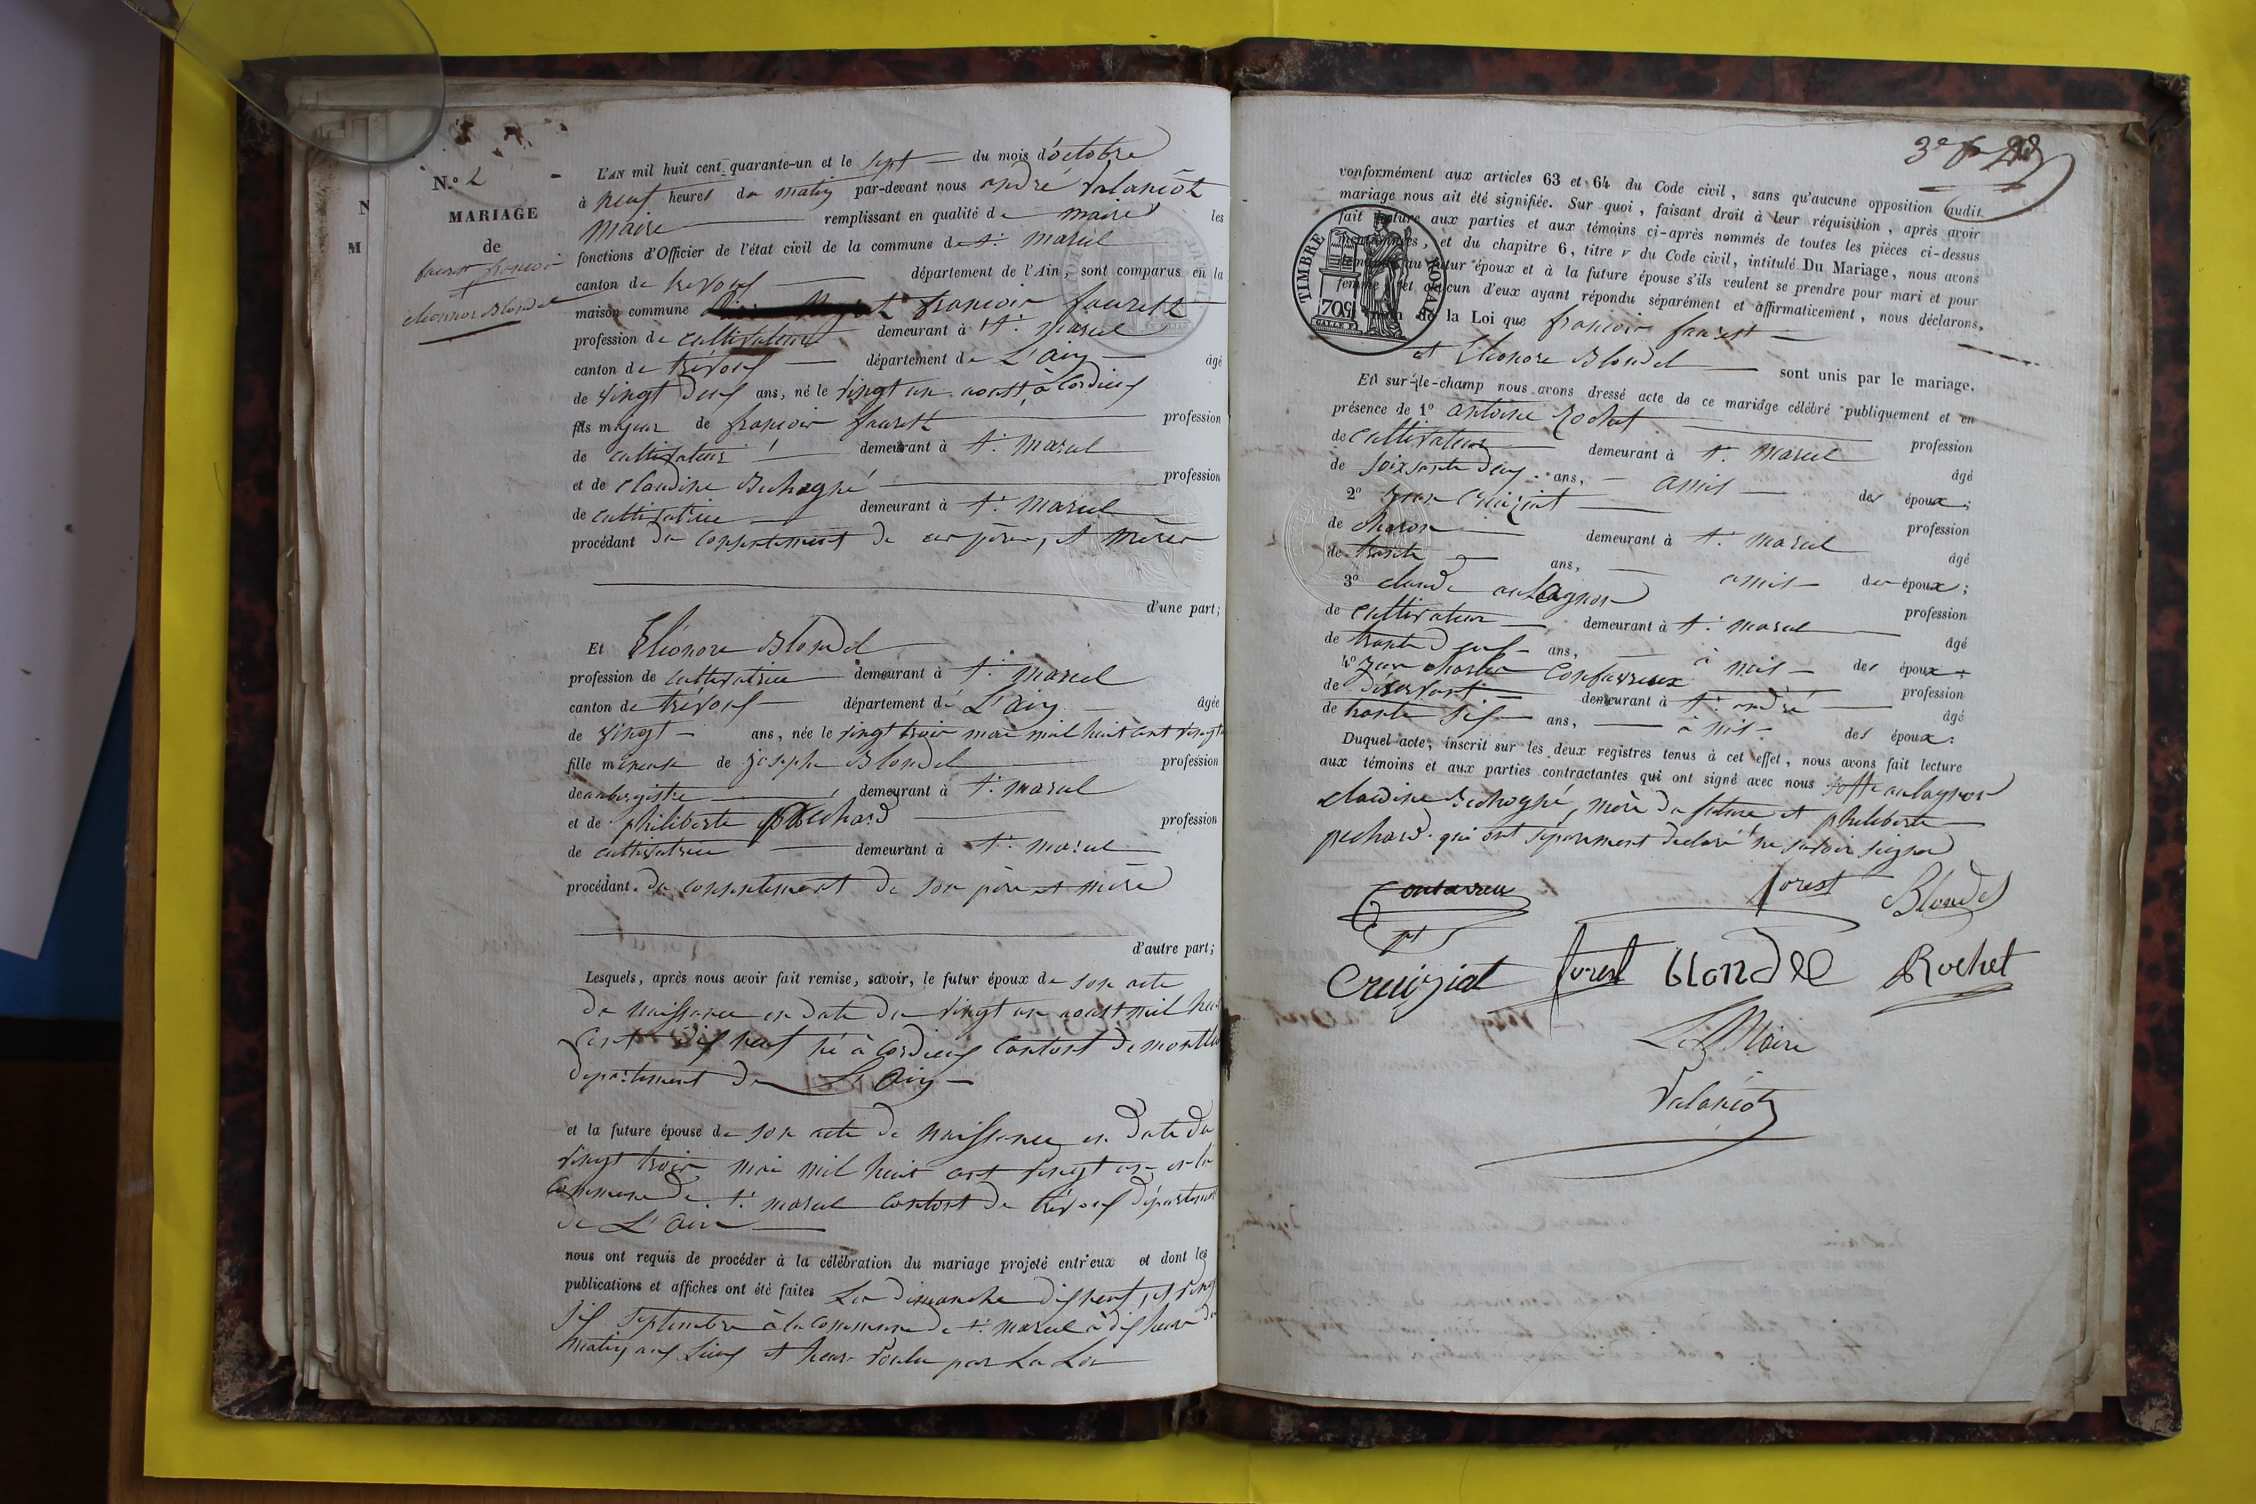 N.º 2
MARIAGE
de
faurest françois
et
eléonore Blondel
N
M
L'AN mil huit cent quarante-un et le sept du mois d'octobre
à neuf heures du matin par-devant nous andré Valanéot
maire remplissant en qualité de maire les
fonctions d'Officier de l'état civil de la commune de st. marcel
canton de trévoux département de l'Ain, sont comparus en la
maison commune françois faurest
profession de cultivateur demeurant à st. marcel
canton de trévoux département de L'ain âgé
de vingt deux ans, né le vingt un aoust à Cordieux
fils majeur de françois faurest profession
de cultivateur demeurant à st. marcel
et de claudine Buhogné profession
de cultivatrice demeurant à st. marcel
procédant du consentement de ses père, et mère
d'une part;
Et Eléonore Blondel
profession de cultivatrice demeurant à st. marcel
canton de trévoux département de L'ain âgée
de vingt ans, née le vingt trois mai mil huit cent vingt
fille mineure de joseph Blondel profession
de aubergiste demeurant à st. marcel
et de philiberte pechard profession
de cultivatrice demeurant à st. marcel
procédant du consentement de son père et mère
d'autre part;
Lesquels, après nous avoir fait remise, savoir, le futur époux de son acte
de naissance en date du vingt un aoust mil hui
cent dix neuf né à Cordieux Cantont de montlu
département de L'Ain
et la future épouse de son acte de naissance en date du
vingt trois mai mil huit cent vingt un en la
commune de st. marcel Contont de trévoux département
de L'ain
nous ont requis de procéder à la célébration du mariage projeté entr'eux et dont les
publications et affiches ont été faites Les dimanche dix neuf, et vingt
six septembre à la commune de st. marcel à dix heure du
matin aux Lieux et heure Voulu par La Loi
3e f
conformément aux articles 63 et 64 du Code civil, sans qu'aucune opposition audit
mariage nous ait été signifiée. Sur quoi, faisant droit à leur réquisition, après avoir
fait lecture aux parties et aux témoins ci-après nommés de toutes les pièces ci-dessus
mentionnées, et du chapitre 6, titre v du Code civil, intitulé Du Mariage, nous avons
demandé au futur époux et à la future épouse s'ils veulent se prendre pour mari et pour
femme; et chacun d'eux ayant répondu séparément et affirmativement, nous déclarons,
au nom de la Loi que françois faurest
TIMBRE ROYAL
70c
et Eléonore Blondel sont unis par le mariage.
Et sur-le-champ nous avons dressé acte de ce mariage célébré publiquement et en
présence de 1º antoine Rochet profession
de cultivateur demeurant à st. marcel âgé
de soixante deux ans, amis des époux;
2º Jean Cruiziat profession
de charon demeurant à st. marcel âgé
de trente ans, amis des époux;
3º claude aulagnon profession
de cultivateur demeurant à st. marcel âgé
de trente neuf ans, à mis des époux;
4º Jean charles Confavreux profession
de désservant demeurant à st. andré âgé
de trente six ans, à mis des époux:
Duquel acte, inscrit sur les deux registres tenus à cet effet, nous avons fait lecture
aux témoins et aux parties contractantes qui ont signé avec nous soffe aulagnon
claudine Buhogné, mère du future et philiberte
pechard qui ont séparément déclaré ne savoir signer
forest Blondel
Cruiziat forest blondel Rochet
Le Maire
Valanéot